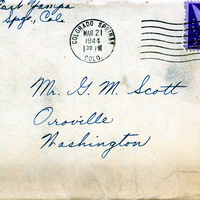 East Yampa
Spgs, Colo.
COLORADO SPRINGS
MAR 21
1944
COLO.
Mr. G. M. Scott
Oroville
Washington